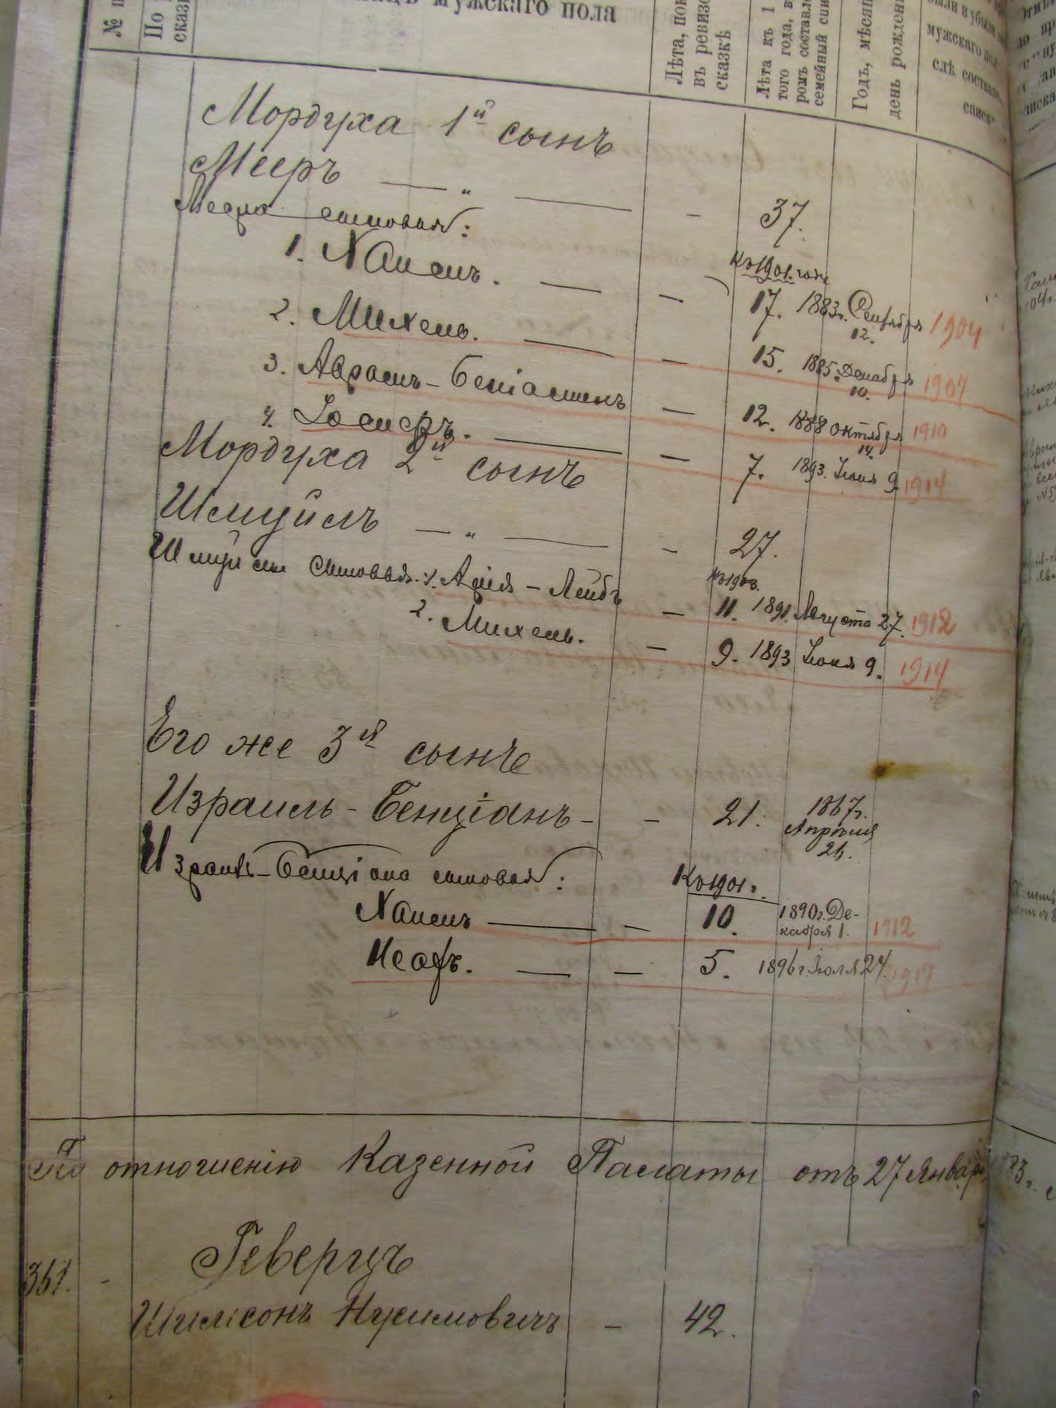 мужскаго пола
Лѣта, пок
въ ревизс
сказкѣ
Лѣта къ 1
того года, в
ромъ составле
семейный спи
Годъ, мѣся
день рожден
мужскаго по
слѣ состав
списк
№
По
сказ
Мордуха 1й сынъ
Мееръ — „ — - 37.
Меера сыновья: Къ 1901 году
1. Хаимъ. — — 17. 1883г. Сентября 12. 1904
2. Михель. — — 15. 1885. Декабря 10. 1907
3. Абрамъ-Беніаминъ — 12. 1888 октября 14. 1910
4. Іосифъ. — — 7. 1893. Іюня 9 1914
Мордуха 2й сынъ
Шмуйлъ — „ — - 27.
Шмуйлы сыновья: 1. Арія-Лейбъ — 11. 1891. Августа 27. 1912
2. Михель. — 9. 1893 Іюня 9. 1914
Его же 3й сынъ
Израиль-Бенціанъ - - 21. 1867г. Апрѣля 26.
Израиль-Бенціана сыновья: Къ 1901 г.
Хаимъ — — 10. 1890г. Декабря 1. 1912
Іосифъ. — — 5. 1896 г. Іюля 24. 1917
По отношенію Казенной Палаты отъ 27 Января
361. - Геверцъ
Шимсонъ Нусимовичъ - 42.